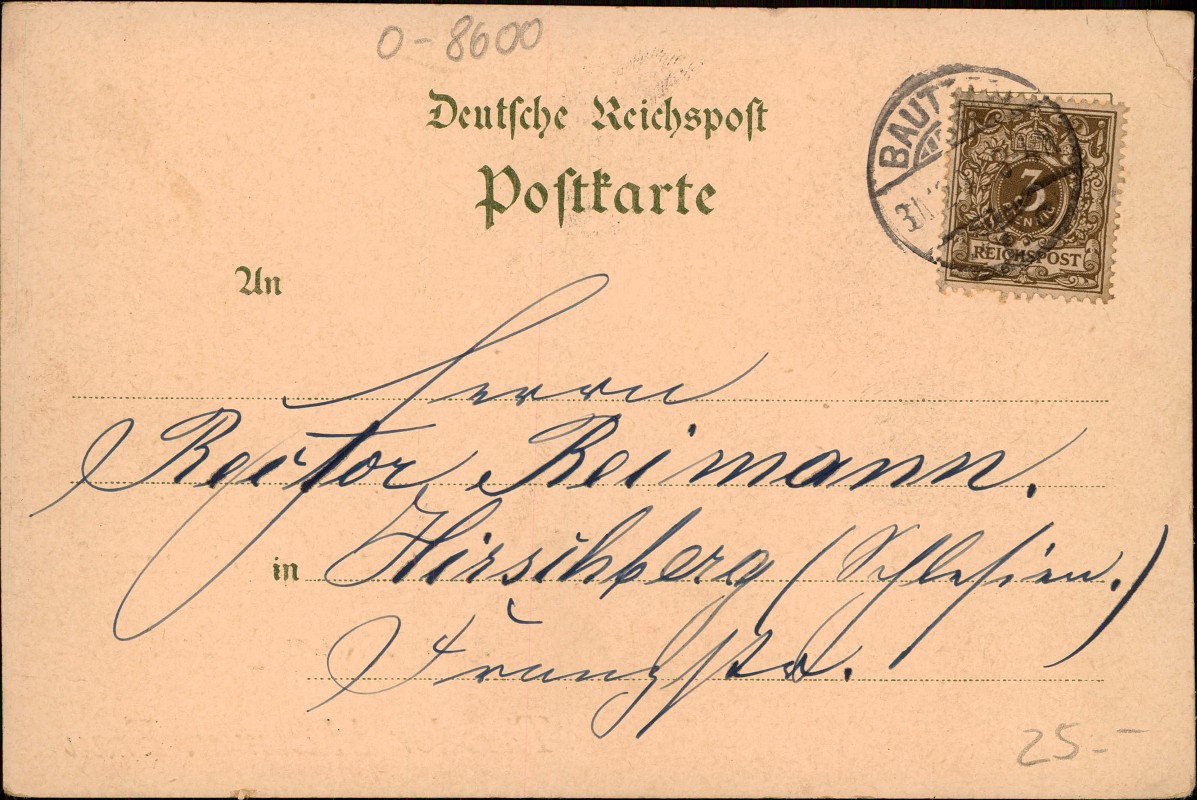 O-8600
Deutsche Reichspost
Postkarte
BAUTZEN
3
PFENNIG
REICHSPOST
An
Herrn
Rector Reimann.
in Hirschberg (Schlesien.)
25.-